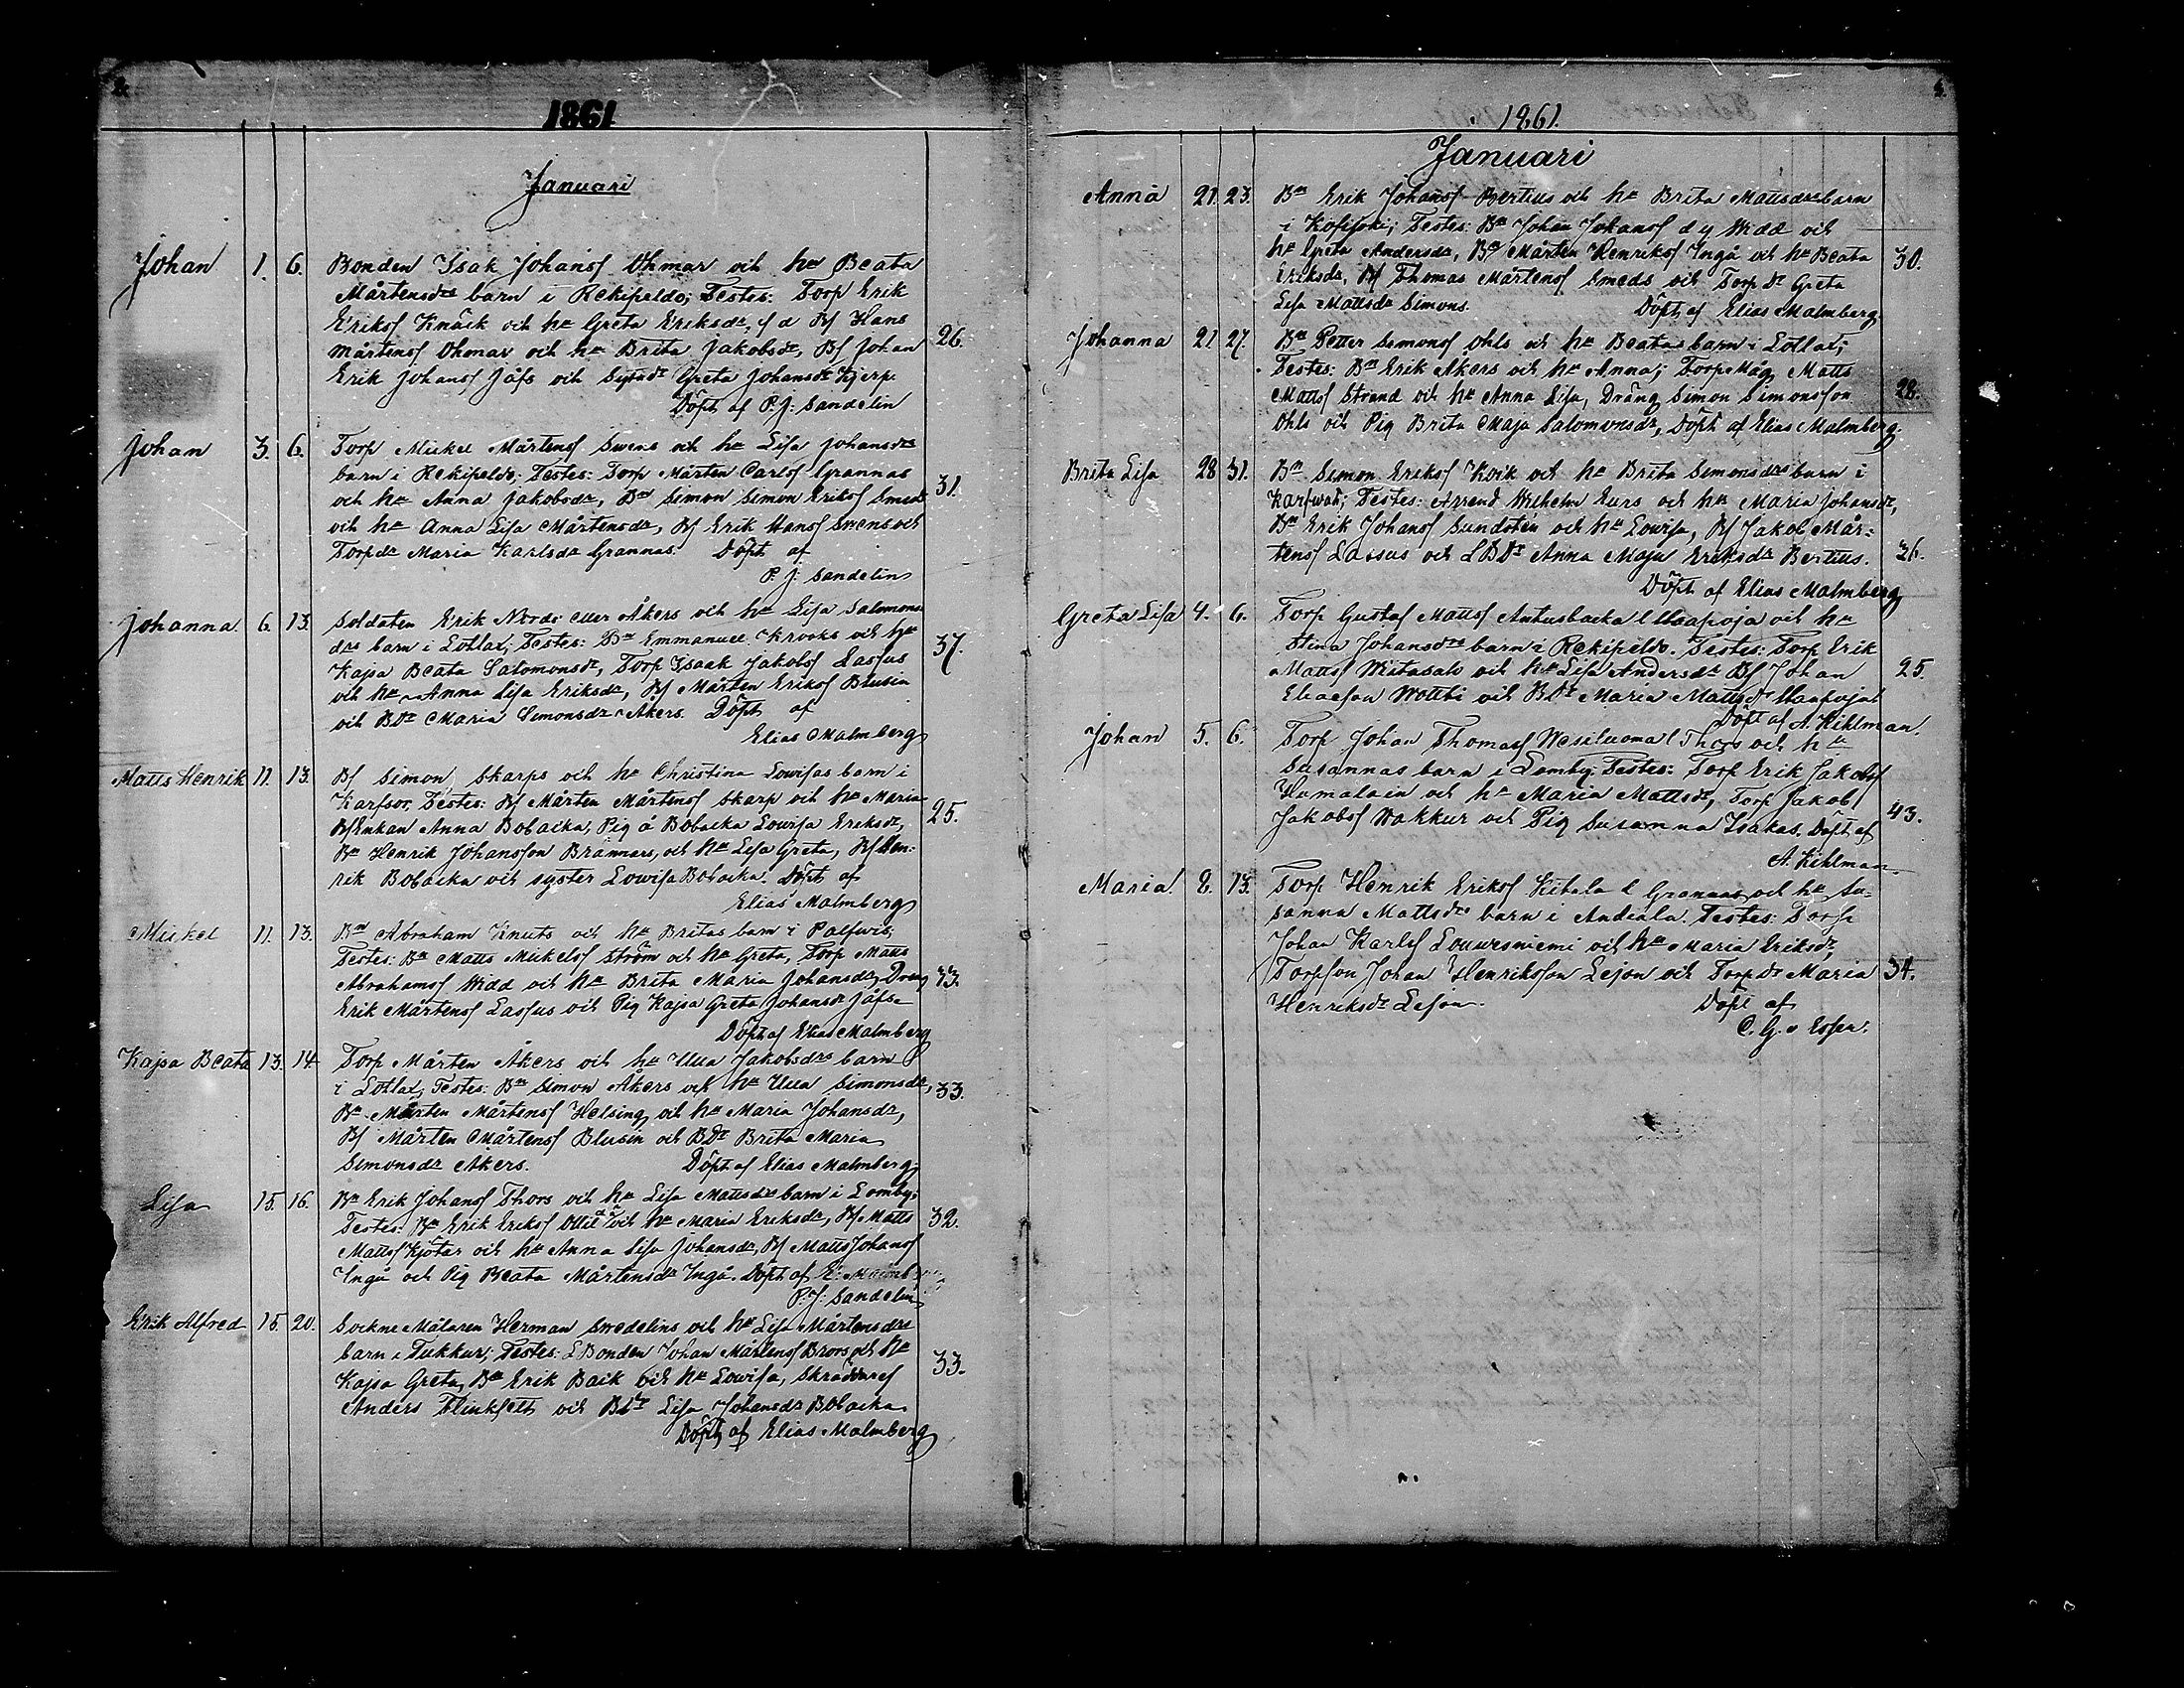 2.
1861
Januari
Johan 1. 6. Bonden Isak Johansſ Ohmar och hu Beata
Mårtensdrs barn i Rekipeldo; Testes: Torp Erik
Eriksſ Knäck och hu Greta Eriksdr, f d Bſ Hans
Mårtensſ Ohmar och hu Brita Jakobsdr, Bſ Johan 26.
Erik Johansſ Jåfs och Sytndr Greta Johansdr Kjerp.
Döpt af P. J. Sandelin
Johan 3. 6. Torp Mickel Mårtensſ Swens och hu Lisa Johansdrs
barn i Rekipeldo; Testes: Torp Mårten Carlsſ Grannas
och hu Anna Jakobsdr, Bn Simon Simon Eriksſ Smeds 31.
och hu Anna Lisa Mårtensdr, Bſ Erik Hansſ Swens och
Torpdr Maria Karlsdr Grannas. Döpt af
P. J. Sandelin
Johanna. 6. 13. Soldaten Erik Nords eller Åkers och hu Lisa Salomons
drs barn i Lotlax; Testes: Bn Emmanuel Krooks och hu
Kajsa Beata Salomonsdr, Torp Isaak Jakobsſ Lassus 37.
och hu Anna Lisa Eriksdr, Bſ Mårten Eriksſ Blusin
och BDr Maria Simonsdr Åkers. Döpt af
Elias Malmberg
Matts Henrik 11. 13. Bſ Simon Skarps och hu Christina Lowisas barn i
Karfsor, Testes: Bſ Mårten Mårtensſ Skarp och hu Maria
BEnkan Anna Bobacka, Pig å Bobacka Lowisa Eriksdr, 25.
Bn Henrik Johansson Brännars, och hu Lisa Greta, Bſ Hen-
rik Bobacka och syster Lowisa Bobacka. Döpt af
Elias Malmberg
Mickel 11. 13. Bn Abraham Knuts och hu Britas barn i Palfwis;
Testes: Bn Matts Mickelsſ Ström och hu Greta, Torp Matts
Abrahamsſ Widd och hu Brita Maria Johansdr, Dreng 43.
Erik Mårtensſ Lassus och Pig Kajsa Greta Johansdr Jåfs.
Döpt af Elias Malmberg
Kajsa Beata 13. 14. Torp Mårten Åkers och hu Ulla Jakobsdrs barn
i Lotlax; Testes: Bn Simon Åkers och hu Ulla Simonsdr, 33.
Bn Mårten Mårtensſ Helsing och hu Maria Johansdr,
Bſ Mårten Mårtensſ Blusin och BDr Brita Maria
Simonsdr Åkers. Döpt af Elias Malmberg
Lisa 15. 16. Bn Erik Johansſ Thors och hu Lisa Mattsdrs barn i Lomby;
Testes: Bn Erik Eriksſ Ollil och hu Maria Eriksdr, Bſ Matts 32.
Mattsſ Kjötar och hu Anna Lisa Johansdr, Bſ Matts Johansſ
Ingå och Pig Beata Mårtensdr Ingå. Döpt af E. Malmberg
P. J. Sandelin
Erik Alfred 15. 20. Sockne Målaren Herman Swedelins och hu Lisa Mårtensdrs
barn i Tukkur; Testes: LBonden Johan Mårtensſ Broos och hu
Kajsa Greta, Bn Erik Back och hu Lowisa, Skräddaresſ 33.
Anders Flinkfelt och BDr Lisa Johansdr Bobacka.
Döpt af Elias Malmberg
1861.
Januari
Anna 21. 23. Bn Erik Johansſ Bertius och hu Brita Mattsdrs barn
i Kosijoki; Testes: Bn Johan Johansſ d y Widd och
hu Greta Andersdr, Bn Mårten Henriksſ Ingå och hu Beata 30.
Eriksdr, Bſ Thomas Mårtensſ Smeds och Torp Dr Greta
Lisa Mattsdr Simons. Döpt af Elias Malmberg.
Johanna 21 27. Bn Petter Simonsſ Ohls och hu Beatas barn i Lotlax;
Testes: Bn Erik Åkers och hu Anna; Torp Måg Matts
Mattsſ Strand och hu Anna Lisa, Dräng Simon Simonsson 28.
Ohls och Pig Brita Maja Salomonsdr, Döpt af Elias Malmberg.
Brita Lisa 28 31. Bn Simon Eriksſ Kock och hu Brita Simonsdrs barn i
Karfwat; Testes: Arrend Wilhelm Lurs och hu Maria Johansdr,
Bn Erik Johansſ Sundsten och hu Lowisa, Bſ Jakob Mår-
tensſ Lassus och LBDr Anna Maja Eriksdr Bertius. 26.
Döpt af Elias Malmberg
Greta Lisa 4. 6. Torp Gustaf Mattsſ Antusbacka l Haapoja och hu
Stina Johansdrs barn i Rekipeldo. Testes: Torp Erik
Mattsſ Wiitasalo och hu Lisa Andersdr Bſ Johan 25.
Eliaeson Wottbi och BDr Maria Mattsdr Haapoja
Döpt af A. Kihlman.
Johan 5. 6. Torp Johan Thomasſ Wesiluoma l Thors och hu
Susannas barn i Lomby. Testes: Torp Erik Jakobsſ
Humalain och hu Maria Mattsdr, Torp Jakob
Jakobsſ Wakkur och Pig Susanna Isakas. Döpt af 43.
A. Kihlman.
Maria 8. 13. Torp Henrik Eriksſ Kitula l Grannas och hu Su-
sanna Mattsdrs barn i Andiala. Testes: Torp
Johan Karlsſ Louwesniemi och hu Maria Eriksdr,
Torpson Johan Henriksson Lejon och Torpdr Maria 34.
Henriksdr Lejon. Döpt af
C. G. v Essen.